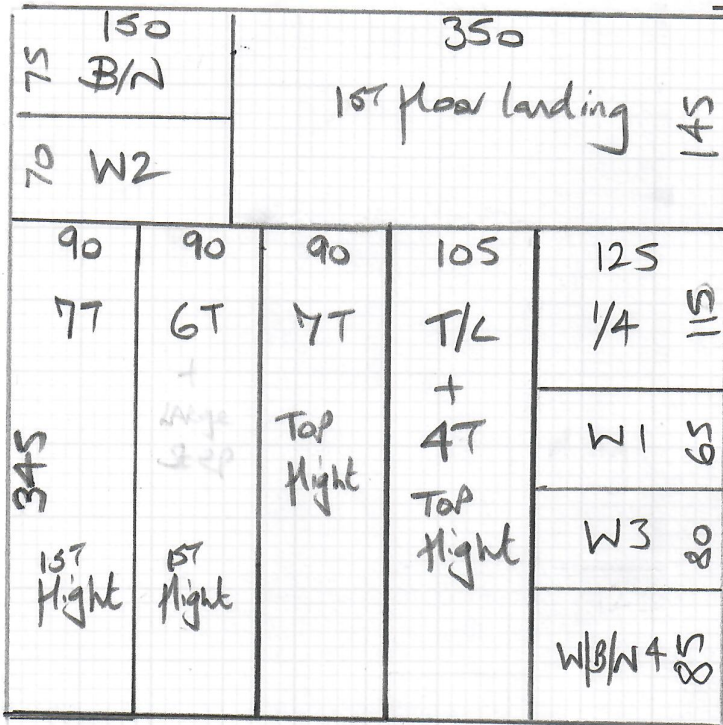 150
75
B/N
350
1ST floor landing
145
70
W2
90
7T
345
1ST
flight
90
6T
+
1ST
flight
90
7T
Top
flight
105
T/L
+
4T
Top
flight
125
1/4
115
W1
65
W3
80
W/B/N 4
85